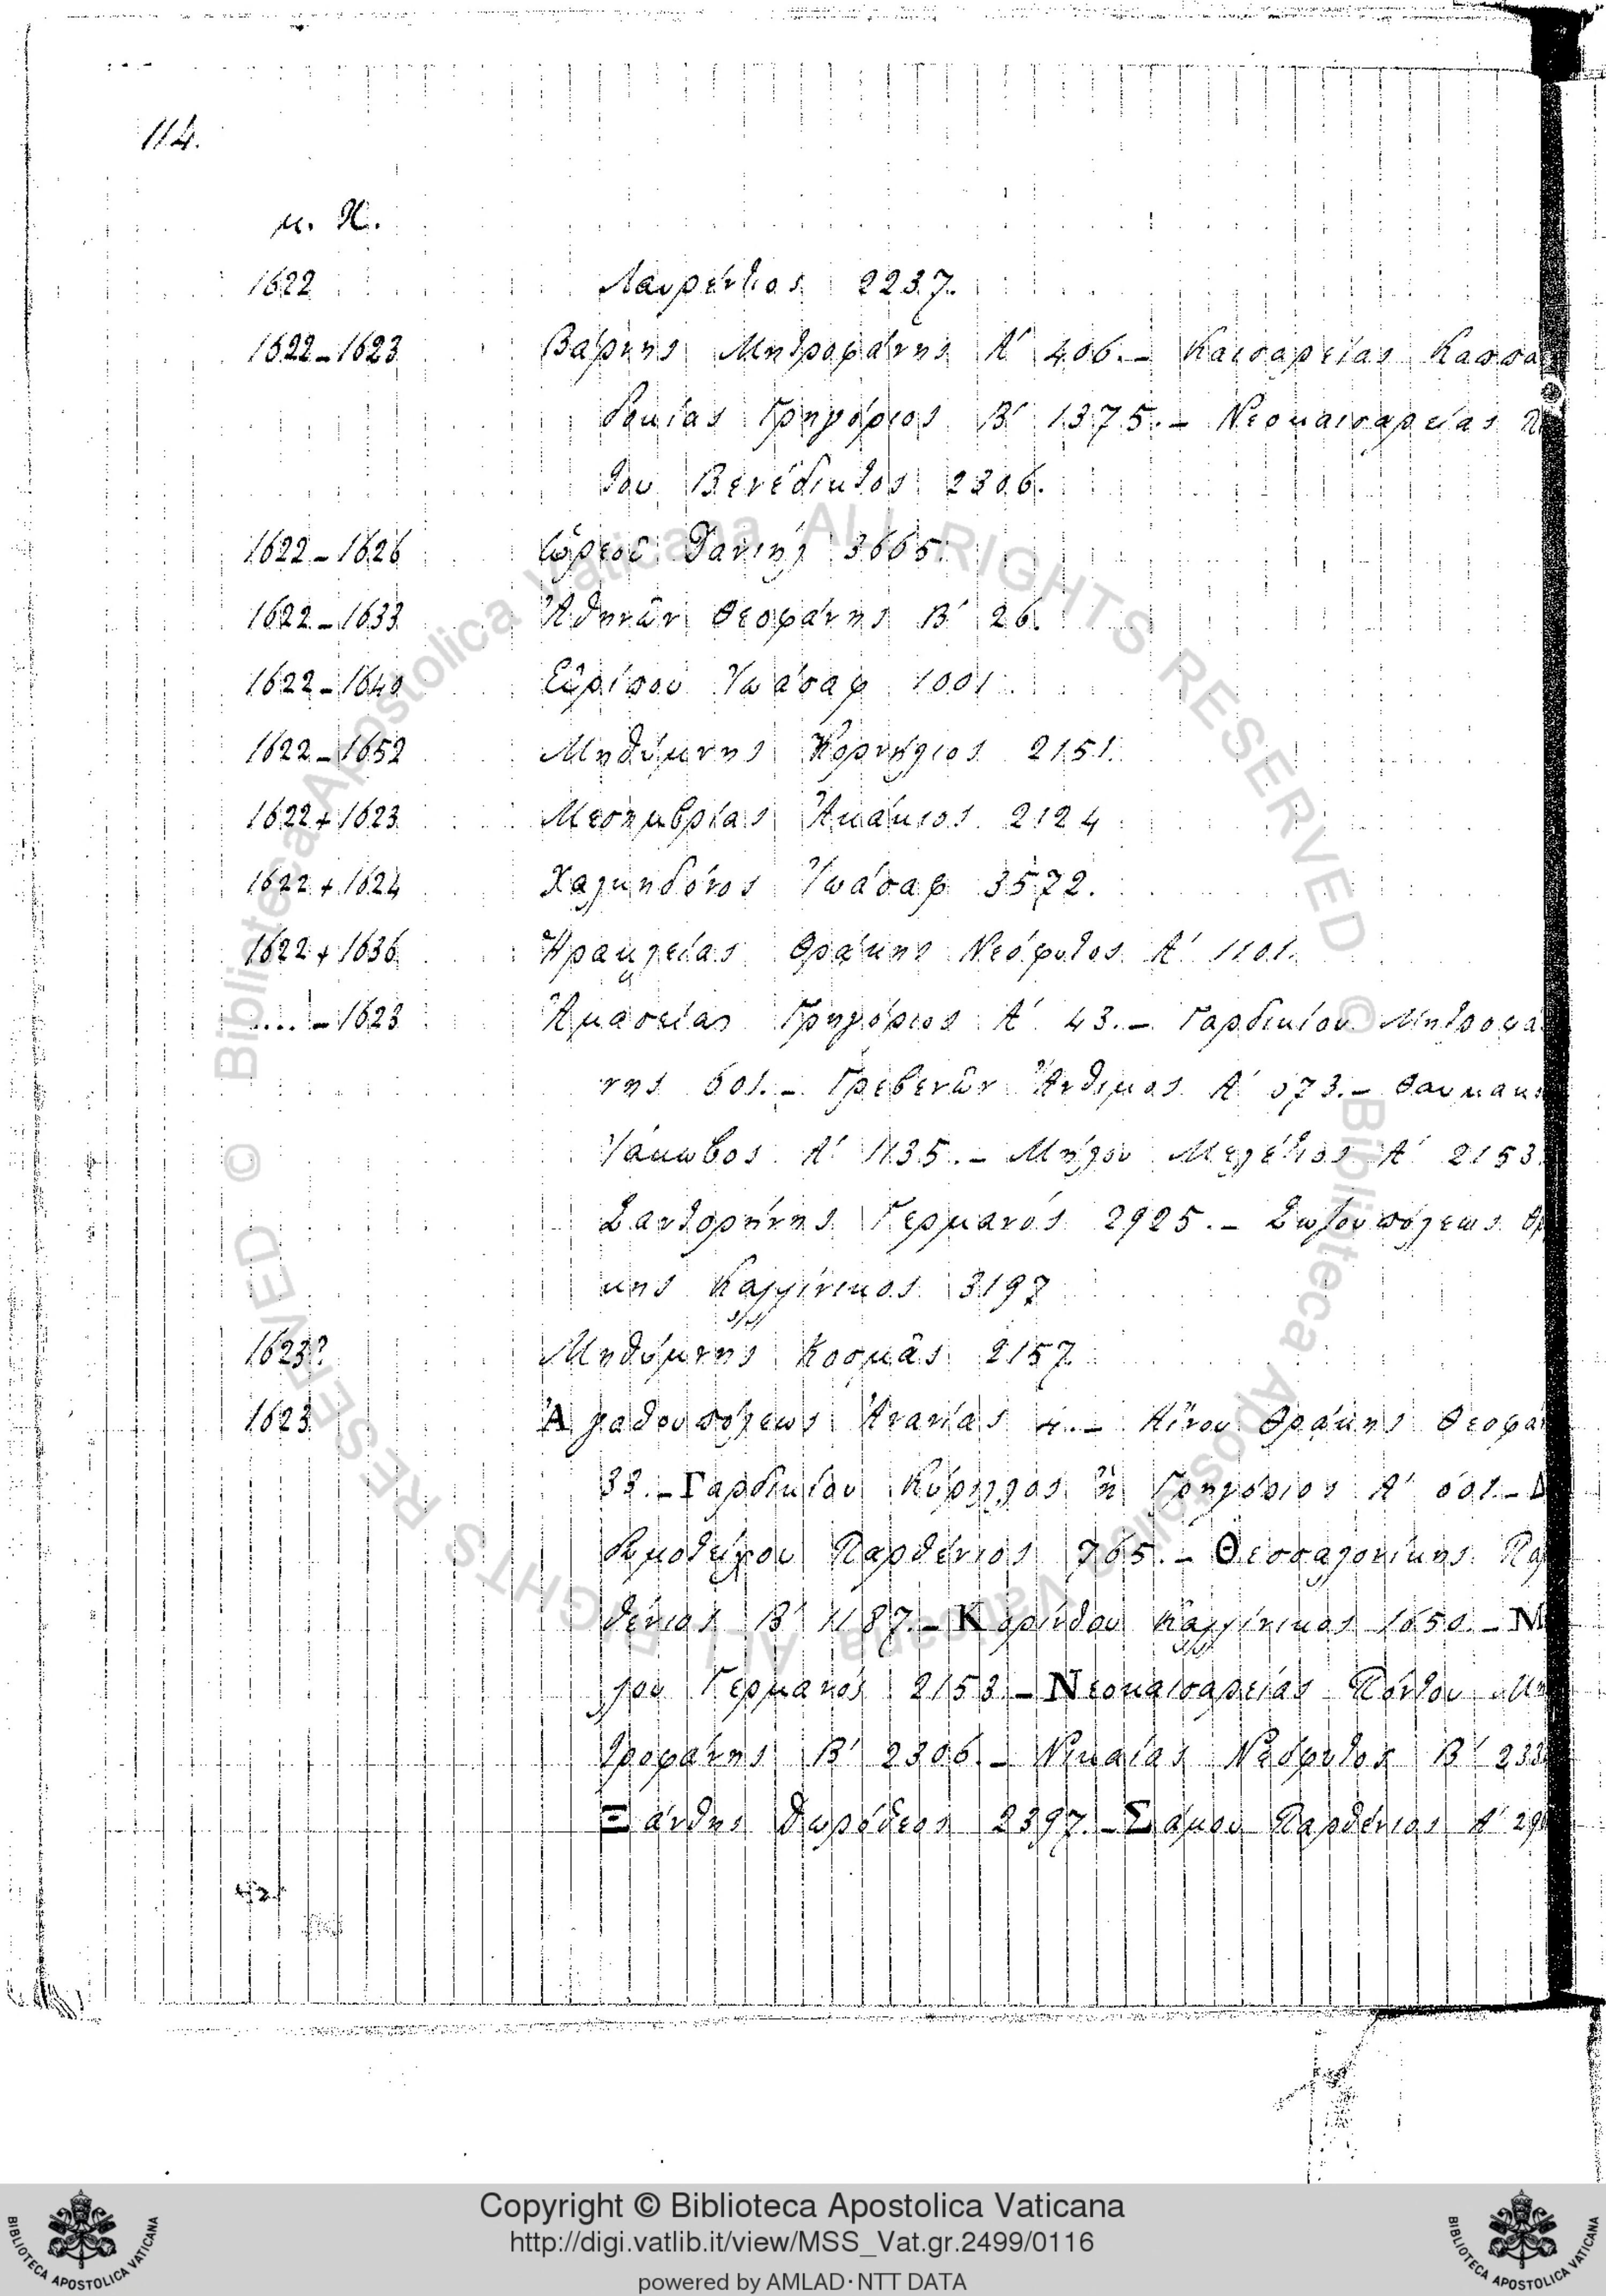 114.
μ. Χ.
1622 Λαυρέντιος 2237.
1622-1623 Βάρνης Μητροφάνης Α' 406.- Καισαρείας Καππα
δοκίας Γρηγόριος Β' 1375.- Νεοκαισαρείας
του Βενέδικτος 2306.
1622-1626 Ὠρεοῦ Δανιήλ 3665.
1622-1633 Ἀθηνῶν Θεοφάνης Β' 26.
1622-1640 Εὐρίπου Ἰωάσαφ 1001.
1622-1652 Μηθύμνης Κορνήλιος 2151.
1622+1623 Μεσημβρίας Ἀκάκιος 2124
1622+1624 Χαλκηδόνος Ἰωάσαφ 3572.
1622+1636 Ἡρακλείας Θράκης Νεόφυτος Α' 1101.
....-1623 Ἀμασείας Γρηγόριος Α' 43.- Γαρδικίου Μητροφά
νης 601.- Γρεβενῶν Ἄνθιμος Α' 673.- Θαυμακ
Ἰάκωβος Α' 1135.- Μήλου Μελέτιος Α' 2153
Σαντορήνης Γερμανός 2925.- Σωζουπόλεως Θρ
κης Καλλίνικος 3197
1623? Μηθύμνης Κοσμᾶς 2157
1623 Ἀγαθουπόλεως Ἀνανίας 4.- Αἴνου Θράκης Θεοφά
33.- Γαρδικίου Κύριλλος ἢ Γρηγόριος Α' 601.- Δ
δυμοτείχου Παρθένιος 765.- Θεσσαλονίκης Παρ
θένιος Β' 1187.- Κορίνθου Καλλίνικος 1650.- Μ
λου Γερμανός 2153.- Νεοκαισαρείας Πόντου Μη
τροφάνης Β' 2306.- Νικαίας Νεόφυτος Β' 233
Ξάνθης Δωρόθεος 2397.- Σάμου Παρθένιος Α' 29
© Biblioteca Apostolica Vaticana ALL RIGHTS RESERVED © Biblioteca Apostolica Vaticana ALL RIGHTS RESERVED
Copyright © Biblioteca Apostolica Vaticana
http://digi.vatlib.it/view/MSS_Vat.gr.2499/0116
powered by AMLAD·NTT DATA
BIBLIOTECA APOSTOLICA VATICANA
BIBLIOTECA APOSTOLICA VATICANA